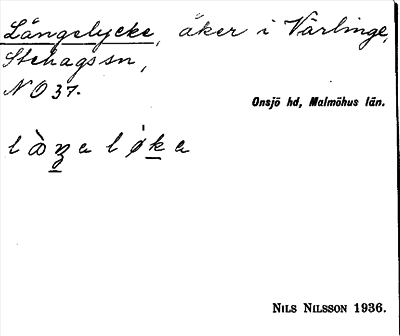 Långelycke, åker i Vårlinge,
Stehags sn,
NO 37.
Onsjö hd, Malmöhus län.
NILS NILSSON 1936.